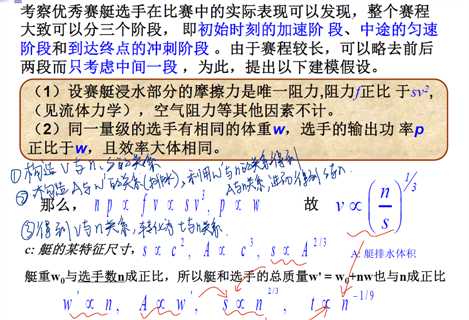 考察优秀赛艇选手在比赛中的实际表现可以发现，整个赛程
大致可以分三个阶段， 即初始时刻的加速阶 段、中途的匀速
阶段和到达终点的冲刺阶段 。由于赛程较长，可以略去前后
两段而只考虑中间一段 ，为此，提出以下建模假设。
（1）设赛艇浸水部分的摩擦力是唯一阻力,阻力f正比 于sv²,
(见流体力学），空气阻力等其他因素不计。
（2）同一量级的选手有相同的体重w，选手的输出功 率p
正比于w，且效率大体相同。
①构造 v与n、s的关系
②构造A与w'的关系(排水)，利用w'与n的关系得到
A与n关系,进而得到s与n.
那么， n p ∝ f v ∝ s v³, p ∝ w 故 v ∝ (n/s)^1/3
③得到v与n关系，转化为t与n关系.
c: 艇的某特征尺寸, s ∝ c², A ∝ c³, s ∝ A^2/3 A: 艇排水体积
艇重w₀与选手数n成正比，所以艇和选手的总质量w' = w₀+nw也与n成正比
w' ∝ n, A ∝ w', s ∝ n^2/3, t ∝ n^-1/9